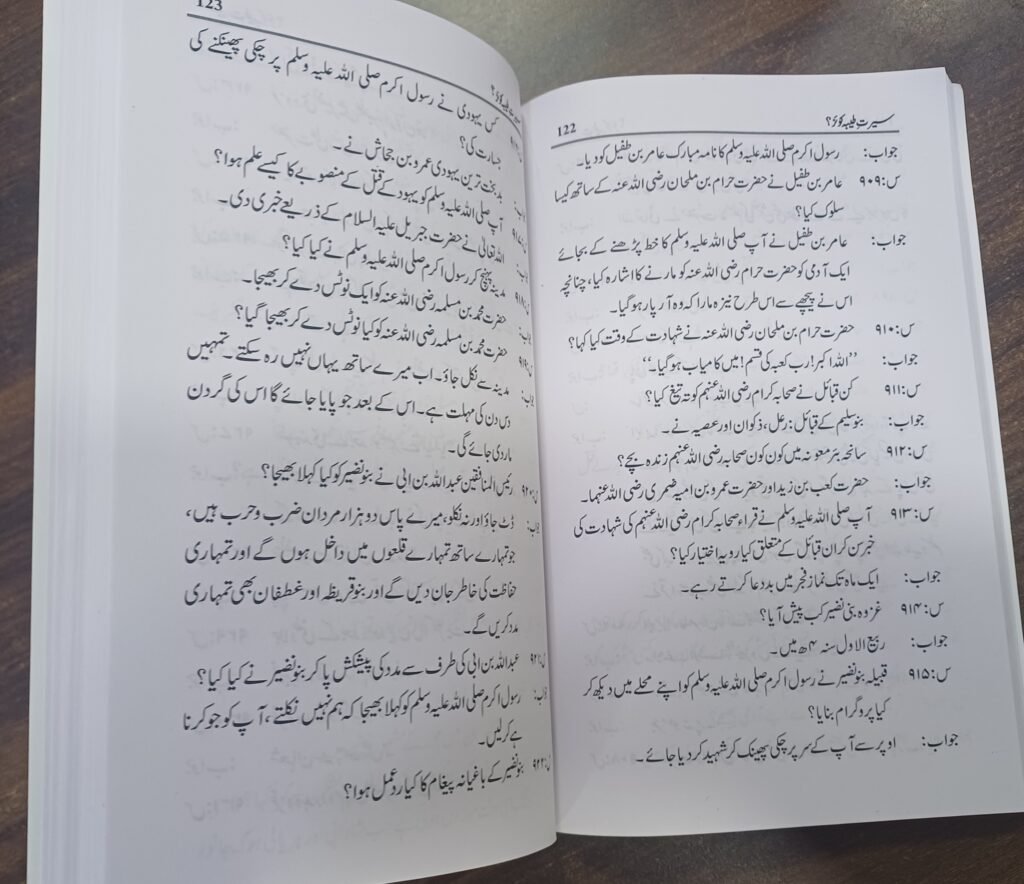 سیرت طیبہ کوئز؟ 122
جواب: رسول اکرم صلی اللہ علیہ وسلم کا نامہ مبارک عامر بن طفیل کو دیا۔
س:۹۰۹ عامر بن طفیل نے حضرت حرام بن ملحان رضی اللہ عنہ کے ساتھ کیسا
سلوک کیا؟
جواب: عامر بن طفیل نے آپ صلی اللہ علیہ وسلم کا خط پڑھنے کے بجائے
ایک آدمی کو حضرت حرام رضی اللہ عنہ کو مارنے کا اشارہ کیا، چنانچہ
اس نے پیچھے سے اس طرح نیزہ مارا کہ وہ آر پار ہوگیا۔
س:۹۱۰ حضرت حرام بن ملحان رضی اللہ عنہ نے شہادت کے وقت کیا کہا؟
جواب: ’’اللہ اکبر! رب کعبہ کی قسم! میں کامیاب ہوگیا۔‘‘
س:۹۱۱ کن قبائل نے صحابہ کرام رضی اللہ عنہم کو تہ تیغ کیا؟
جواب: بنو سلیم کے قبائل: رعل، ذکوان اور عصیہ نے۔
س:۹۱۲ سانحہ بئر معونہ میں کون کون صحابہ رضی اللہ عنہم زندہ بچے؟
جواب: حضرت کعب بن زید اور حضرت عمرو بن امیہ ضمری رضی اللہ عنہما۔
س:۹۱۳ آپ صلی اللہ علیہ وسلم نے قراء صحابہ کرام رضی اللہ عنہم کی شہادت کی
خبر سن کر ان قبائل کے متعلق کیا رویہ اختیار کیا؟
جواب: ایک ماہ تک نماز فجر میں بددعا کرتے رہے۔
س:۹۱۴ غزوہ بنی نضیر کب پیش آیا؟
جواب: ربیع الاول سنہ ۴ھ میں۔
س:۹۱۵ قبیلہ بنو نضیر نے رسول اکرم صلی اللہ علیہ وسلم کو اپنے محلے میں دیکھ کر
کیا پروگرام بنایا؟
جواب: اوپر سے آپ کے سر پر چکی پھینک کر شہید کر دیا جائے۔
123
کس یہودی نے رسول اکرم صلی اللہ علیہ وسلم پر چکی پھینکنے کی
جسارت کی؟
بدبخت ترین یہودی عمرو بن جحاش نے۔
آپ صلی اللہ علیہ وسلم کو یہود کے قتل کے منصوبے کا کیسے علم ہوا؟
اللہ تعالیٰ نے حضرت جبریل علیہ السلام کے ذریعے خبر دی۔
مدینہ پہنچ کر رسول اکرم صلی اللہ علیہ وسلم نے کیا کیا؟
حضرت محمد بن مسلمہ رضی اللہ عنہ کو ایک نوٹس دے کر بھیجا۔
حضرت محمد بن مسلمہ رضی اللہ عنہ کو کیا نوٹس دے کر بھیجا گیا؟
مدینہ سے نکل جاؤ۔ اب میرے ساتھ یہاں نہیں رہ سکتے۔ تمہیں
دس دن کی مہلت ہے۔ اس کے بعد جو پایا جائے گا اس کی گردن
مار دی جائے گی۔
س:۹۲۰ رئیس المنافقین عبداللہ بن ابی نے بنو نضیر کو کیا کہلا بھیجا؟
ڈٹ جاؤ اور نہ نکلو، میرے پاس دو ہزار مردان ضرب و حرب ہیں،
جو تمہارے ساتھ تمہارے قلعوں میں داخل ہوں گے اور تمہاری
حفاظت کی خاطر جان دیں گے اور بنو قریظہ اور غطفان بھی تمہاری
مدد کریں گے۔
س:۹۲۱ عبداللہ بن ابی کی طرف سے مدد کی پیشکش پا کر بنو نضیر نے کیا کیا؟
رسول اکرم صلی اللہ علیہ وسلم کو کہلا بھیجا کہ ہم نہیں نکلتے، آپ کو جو کرنا
ہے کرلیں۔
س:۹۲۲ بنو نضیر کے باغیانہ پیغام کا کیا ردعمل ہوا؟